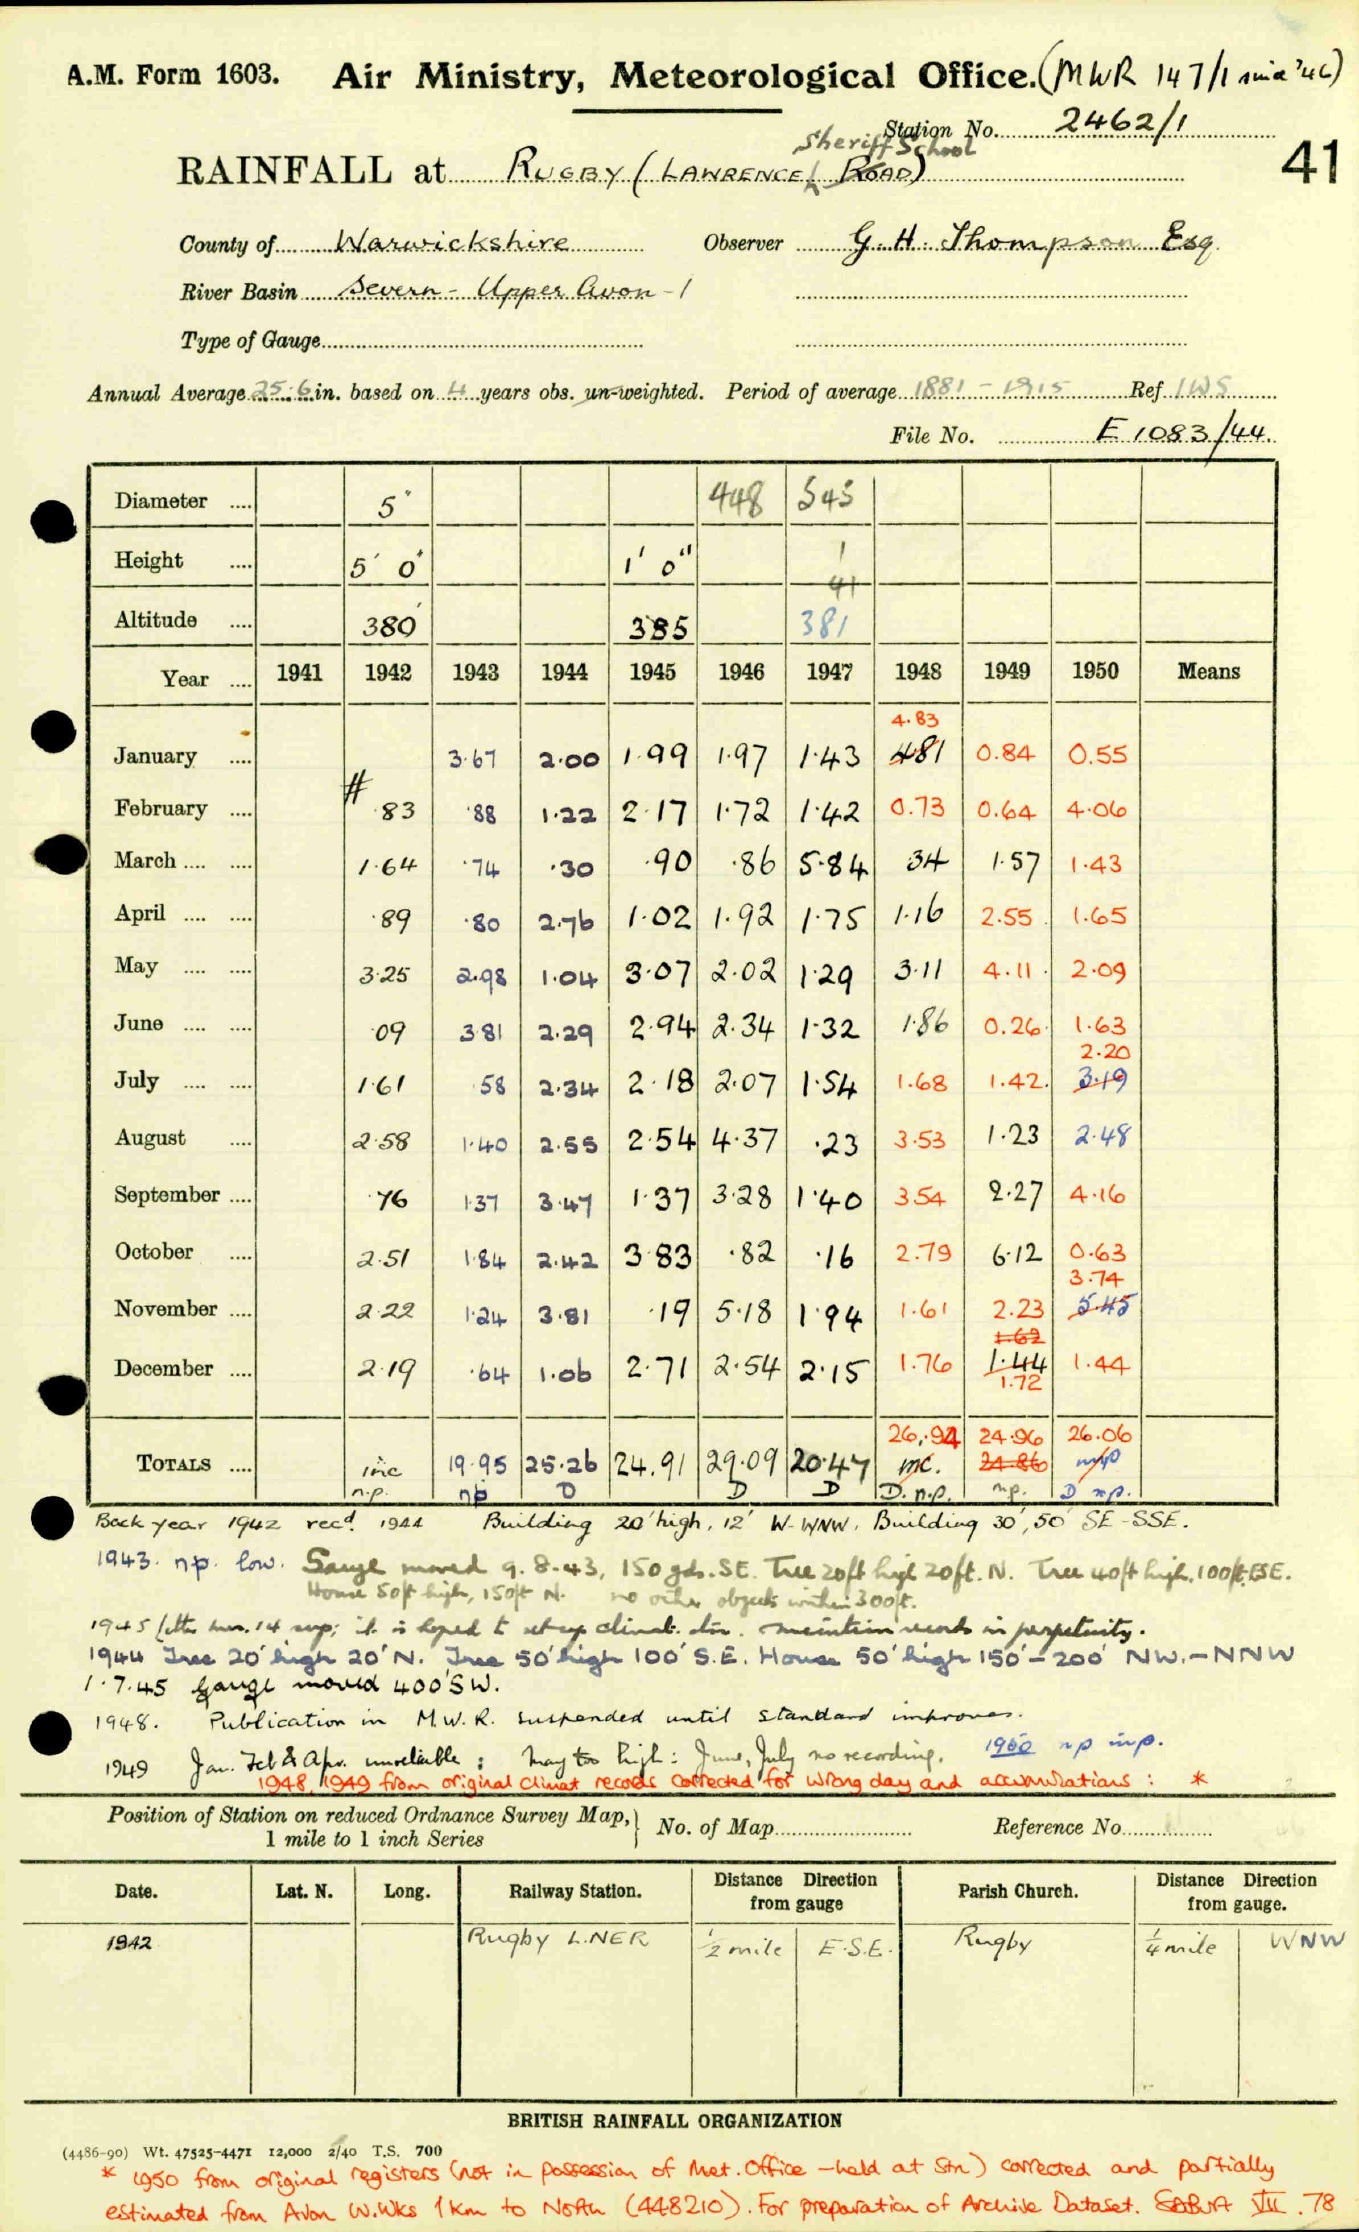 A.M. Form 1603. Air Ministry, Meteorological Office. (MWR 147/1 since '46)
Station No. 2462/1
Sheriff School
RAINFALL at RUGBY (LAWRENCE ROAD) 41
County of Warwickshire Observer G. H. Thompson Esq.
River Basin Severn - Upper Avon - 1
Type of Gauge
Annual Average 25.6 in. based on 4 years obs. un-weighted. Period of average 1881 - 1915 Ref IWS
File No. E 1083/44.
Diameter .... 5" 448 543
Height .... 5' 0" 1' 0" 1
41
Altitude .... 380' 385 381
Year .... 1941 1942 1943 1944 1945 1946 1947 1948 1949 1950 Means
4.83
January .... 3.67 2.00 1.99 1.97 1.43 481 0.84 0.55
February .... # .83 .88 1.22 2.17 1.72 1.42 0.73 0.64 4.06
March .... .... 1.64 .74 .30 .90 .86 5.84 34 1.57 1.43
April .... .... .89 .80 2.76 1.02 1.92 1.75 1.16 2.55 1.65
May .... .... 3.25 2.98 1.04 3.07 2.02 1.29 3.11 4.11 2.09
June .... .... 09 3.81 2.29 2.94 2.34 1.32 1.86 0.26 1.63
2.20
July .... .... 1.61 .58 2.34 2.18 2.07 1.54 1.68 1.42 3.19
August .... 2.58 1.40 2.55 2.54 4.37 .23 3.53 1.23 2.48
September .... .76 1.37 3.47 1.37 3.28 1.40 3.54 2.27 4.16
October .... 2.51 1.84 2.42 3.83 .82 .16 2.79 6.12 0.63
3.74
November .... 2.22 1.24 3.81 .19 5.18 1.94 1.61 2.23 5.45
1.62
December .... 2.19 .64 1.06 2.71 2.54 2.15 1.76 1.44 1.44
1.72
26.94 24.96 26.06
TOTALS .... inc 19.95 25.26 24.91 29.09 20.47 inc. 24.86
n.p. np D D D D. n.p. n.p. D n.p.
Back year 1942 recd. 1944 Building 20' high, 12' W-WNW. Building 30', 50' SE-SSE.
1943. np. low. Gauge moved 9.8.43, 150 yds. SE. Tree 20ft high 20ft. N. Tree 40ft high, 100ft. ESE.
House 50ft high, 150ft N. no other objects within 300ft.
1945 it is hoped to set up climat. stn. maintain records in perpetuity.
1944 Tree 20' high 20' N. Tree 50' high 100' S.E. House 50' high 150' - 200' NW. - NNW
1.7.45 Gauge moved 400' SW.
1948. Publication in M.W.R. suspended until standard improves.
1949 Jan. Feb & Apr. unreliable; May too high: June, July no recording. 1950 np
1948, 1949 from original climat records corrected for wrong day and accumulations: *
Position of Station on reduced Ordnance Survey Map, 1 mile to 1 inch Series } No. of Map Reference No.
Date. Lat. N. Long. Railway Station. Distance Direction from gauge Parish Church. Distance Direction from gauge.
1942 Rugby L.NER 1/2 mile E.S.E. Rugby 1/4 mile WNW
BRITISH RAINFALL ORGANIZATION
(4486-90) Wt. 47525-4471 12,000 2/40 T.S. 700
* 1950 from original registers (not in possession of Met. Office - held at Stn) corrected and partially
estimated from Avon W.Wks 1km to North (448210). For preparation of Archive Dataset. VII. 78